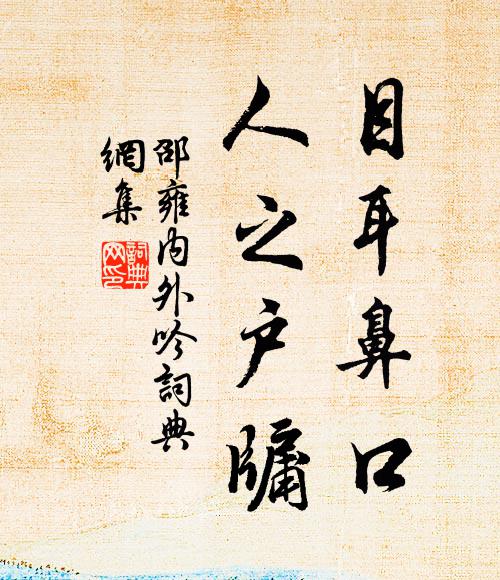 目耳鼻口
人之户牖
邵雍内外吟詞典
網集
詞典
網印